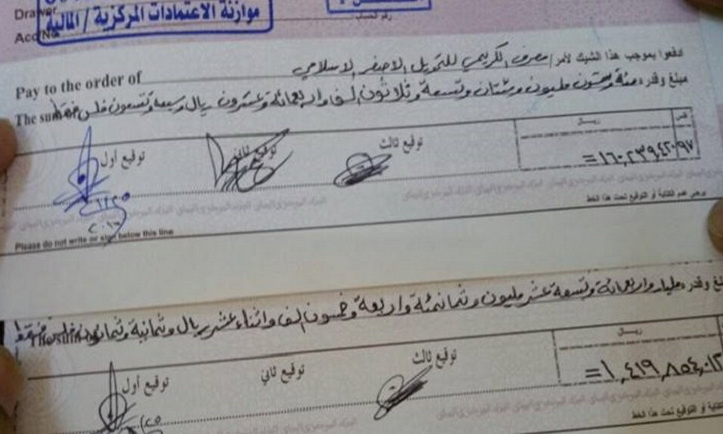 Drawer
Acc No
موازنة الاعتمادات المركزية / المالية
رقم الحساب
ادفعوا بموجب هذا الشيك لأمر / مصرف الكريمي للتمويل الاصغر الاسلامي
Pay to the order of
مبلغ وقدره مئة وستون مليون ومئتان وتسعة وثلاثون الف واربعمائة وعشرون ريال وسبعة وتسعون فلس فقط
The sum of
توقيع أول
توقيع ثاني
توقيع ثالث
فلس
ريـــال
=١٦٠,٢٣٩,٤٢٠/٩٧
١٢٢٥
٢٠١٦
يرجى عدم الكتابة أو التوقيع تحت هذا الخط
Please do not write or sign below this line
مبلغ وقدره مليار واربعمائة وتسعة عشر مليون وثمانمئة واربعة وخمسون الف واثناء عشر ريال وثمانية وثمانون فلس فقط
The sum of
توقيع أول
توقيع ثاني
توقيع ثالث
ريـــال
=١,٤١٩,٨٥٤,٠١٢
أو التوقيع تحت هذا الخط